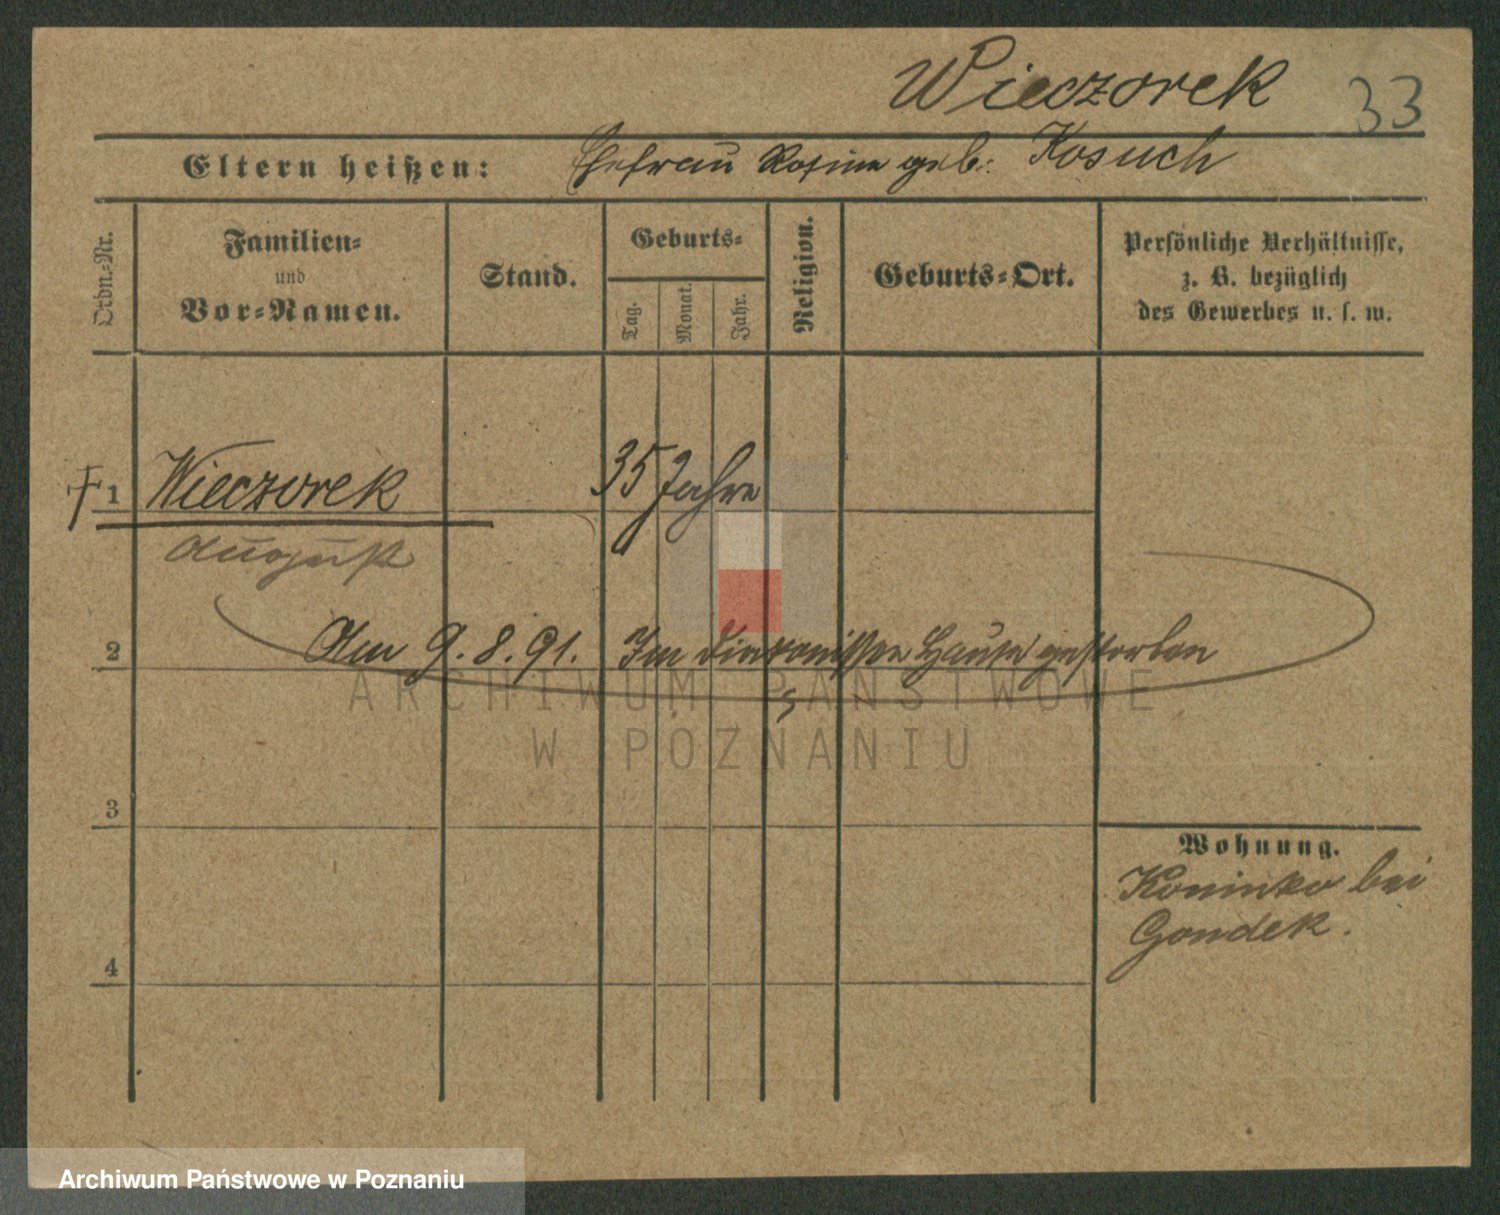 Wieczorek 33
Eltern heißen: Ehefrau Rosine geb: Kosuch
Ordn.-Nr.
Familien-
und
Vor-Namen.
Stand.
Geburts-
Tag.
Monat.
Jahr.
Religion.
Geburts-Ort.
Persönliche Verhältnisse,
z. B. bezüglich
des Gewerbes u. s. w.
† 1 Wieczorek 35 Jahre
August
2 Am 9. 8. 91. Im Diakonissen Hause gestorben
ARCHIWUM PAŃSTWOWE
W POZNANIU
3
Wohnung.
Koninko bei
Gondek.
4
Archiwum Państwowe w Poznaniu